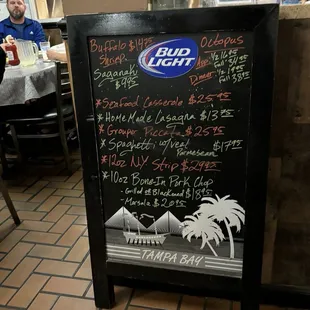 Buffalo $14.95
Shrimp
Saganaki
$9.95
BUD
LIGHT
Octopus
App. 1/2 16.95
Full 34.95
Dinner 1/2 19.95
Full 38.95
* Seafood Casserole $25.95
* Home Made Lasagna $13.95
* Grouper Piccata $25.95
* Spaghetti w/veal $17.95
Parmesean
* 12oz NY Strip $24.95
* 10oz Bone-In Pork Chop
- Grilled or Blackened $18.95
- Marsala $20.95
TAMPA BAY